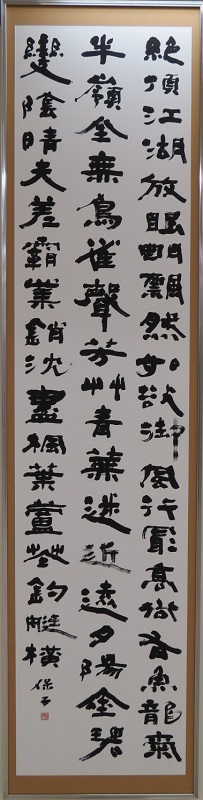 絶頂江湖放眼明飄然如欲御風行最高有魚龍氣
半嶺全無鳥雀聲芳艸青蕪迷近遠夕陽金碧
變陰晴夫差霸業銷沈盡楓葉蘆花釣艇橫